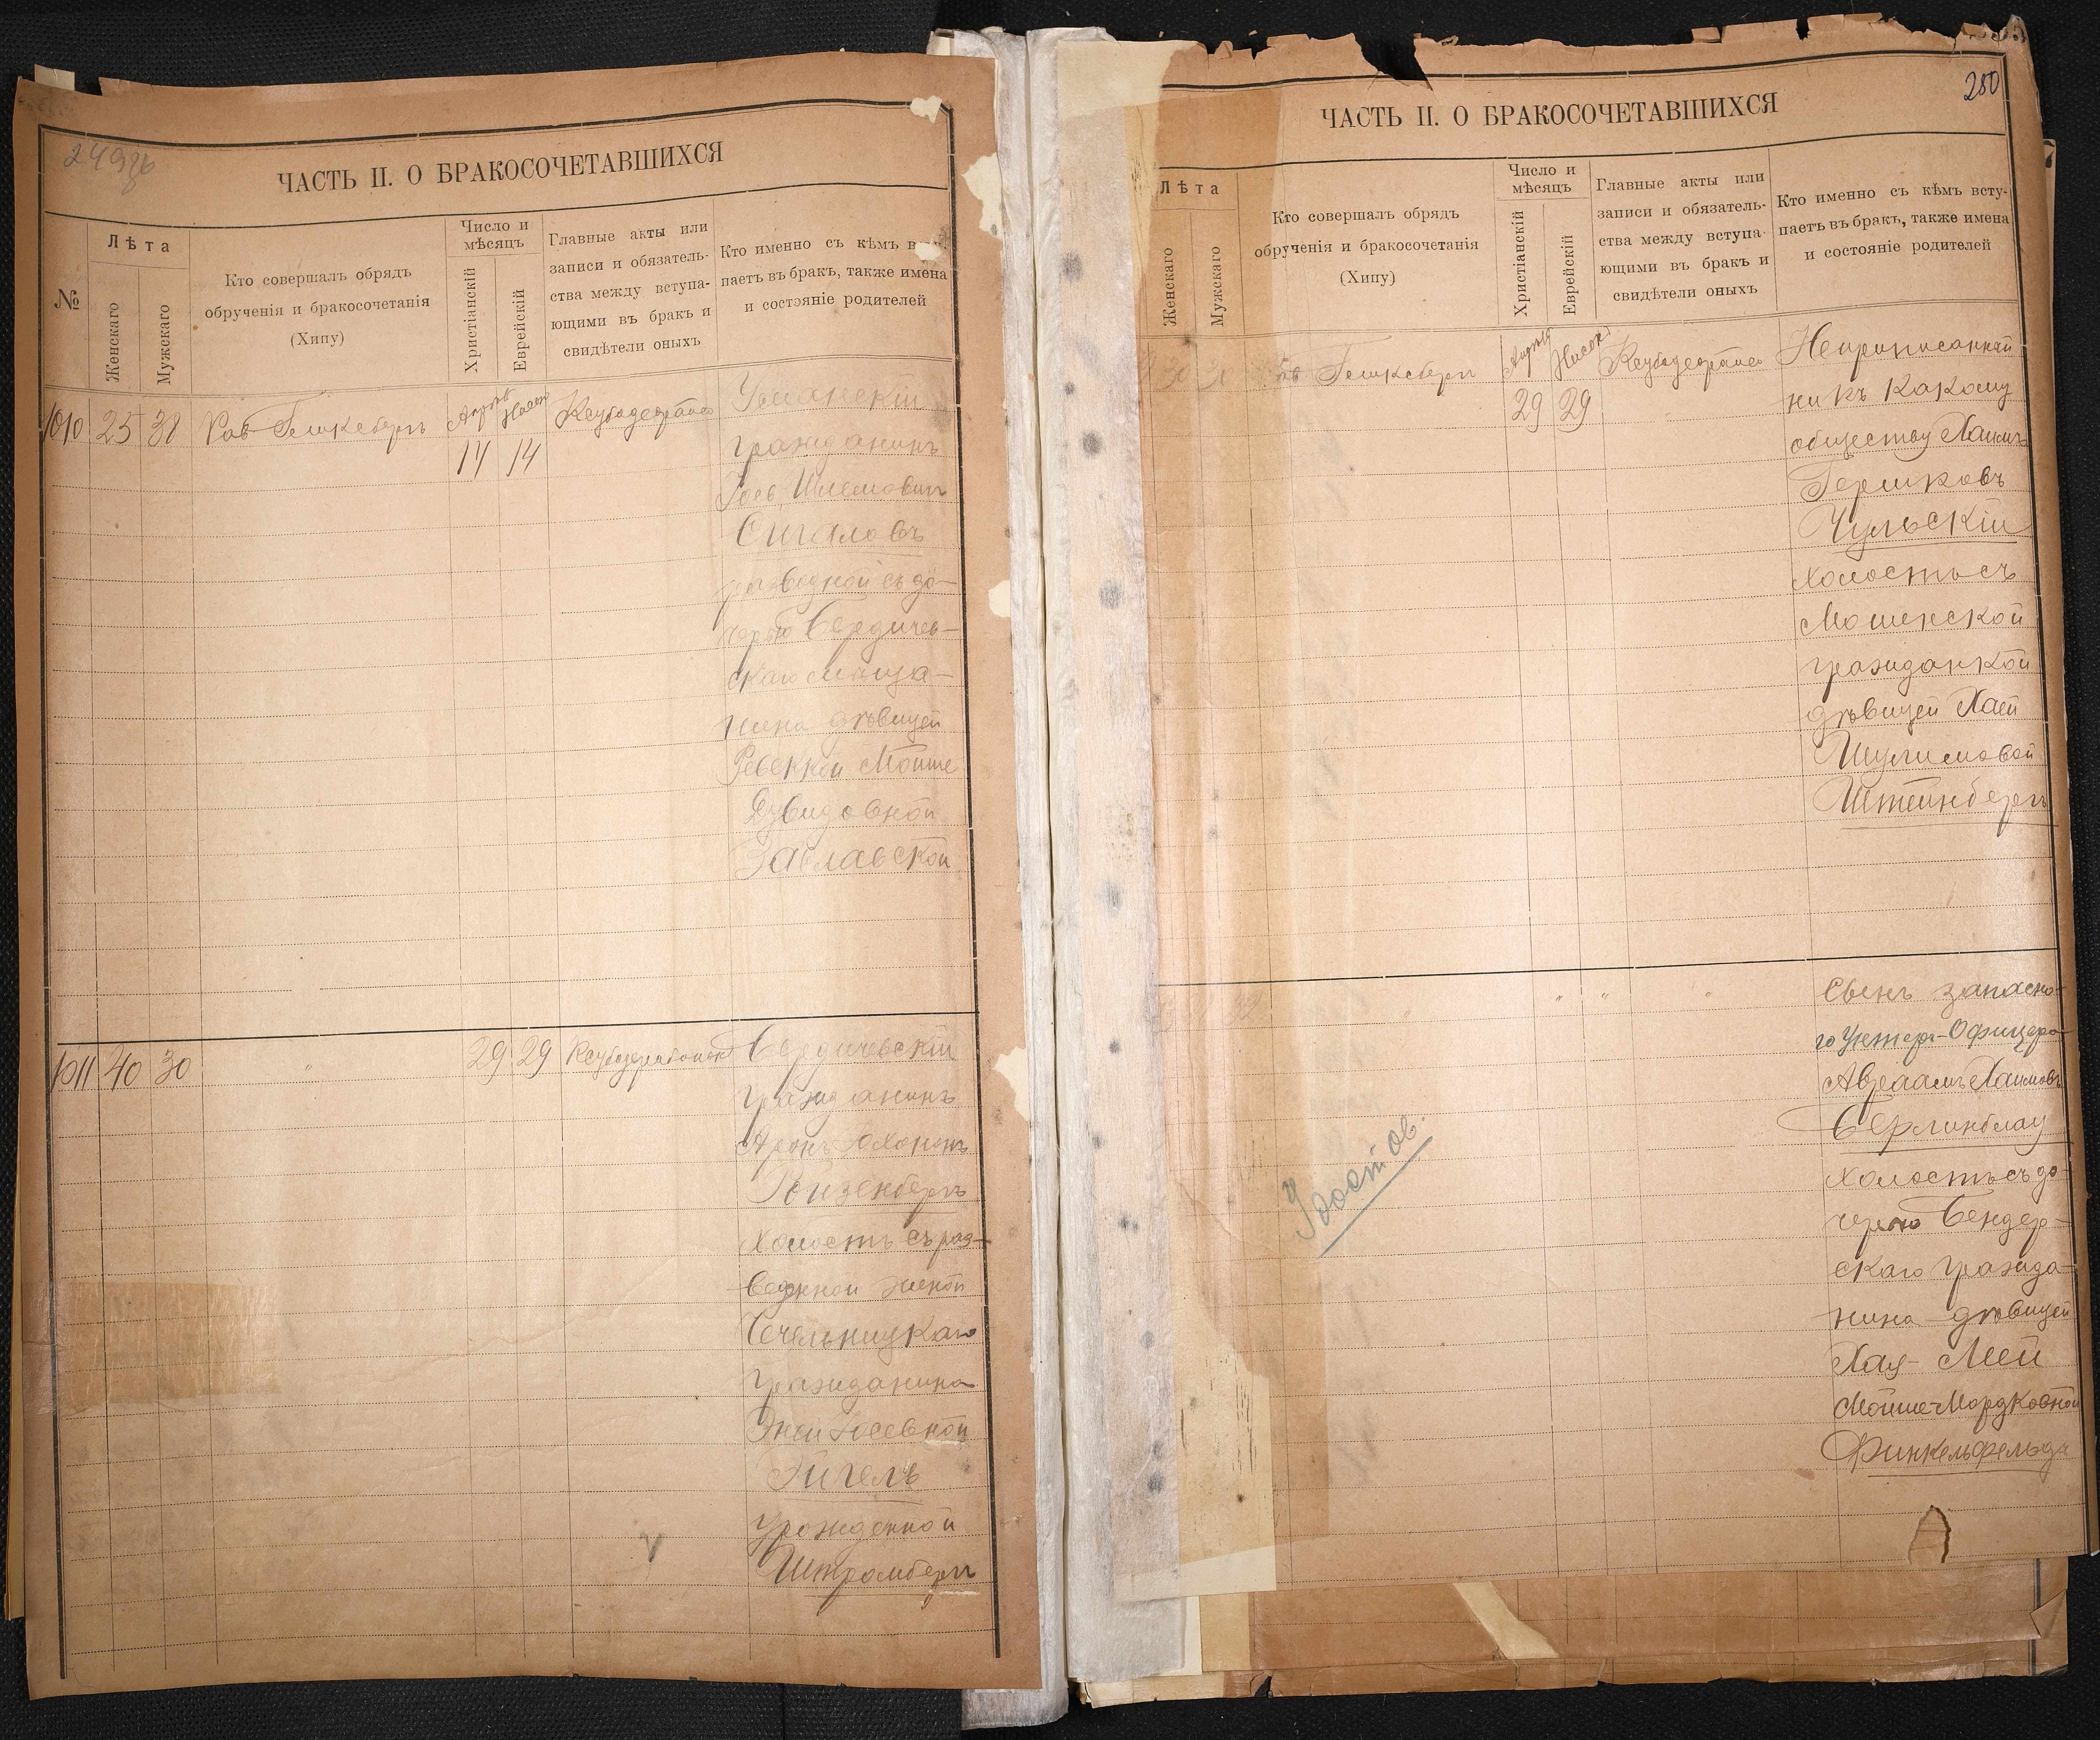 249 об
ЧАСТЬ II. О БРАКОСОЧЕТАВШИХСЯ
№
Лѣта
Женскаго
Мужскаго
Кто совершалъ обрядъ
обрученія и бракосочетанія
(Хипу)
Число и
мѣсяцъ
Христіанскій
Еврейскій
Главные акты или
записи и обязатель-
ства между вступа-
ющими въ бракъ и
свидѣтели оныхъ
Кто именно съ кѣмъ всту-
паетъ въ бракъ, также имена
и состояніе родителей
1010 25 38 Рав
14 14
Уманскій
гражданинъ
Іосъ Шлемовичъ
Сигаловъ
разводной съ до-
черью Бердичев-
скаго мѣща-
нина дѣвицей
Ревеккой Мойше
Дувидовной
Заславской
1011 40 30 " 29 29
Бердичевскій
гражданинъ
Аронъ
Ройзенбергъ
холостъ съ раз-
веденной женой
Чечельницкаго
гражданина
Іосевной
Эйгель
урожденной
Штромбергъ
280
ЧАСТЬ II. О БРАКОСОЧЕТАВШИХСЯ
Лѣта
Женскаго
Мужскаго
Кто совершалъ обрядъ
обрученія и бракосочетанія
(Хипу)
Число и
мѣсяцъ
Христіанскій
Еврейскій
Главные акты или
записи и обязатель-
ства между вступа-
ющими въ бракъ и
свидѣтели оныхъ
Кто именно съ кѣмъ всту-
паетъ въ бракъ, также имена
и состояніе родителей
29 29
Неприписанный
ни къ какому
обществу Хаимъ
Гершковъ
Чульскій
холостъ съ
Мошенской
гражданкой
дѣвицей Хаей
Шулимовой
Штейнбергъ
" " " "
Сынъ запасно-
го Унтеръ-Офицера
Авраамъ Хаимовъ
Берлинблау
холостъ съ до-
черью Бендер-
скаго гражда-
нина дѣвицей
Хая-Леей
Мойше-Мордковной
Финкельфельдъ
Удостов.